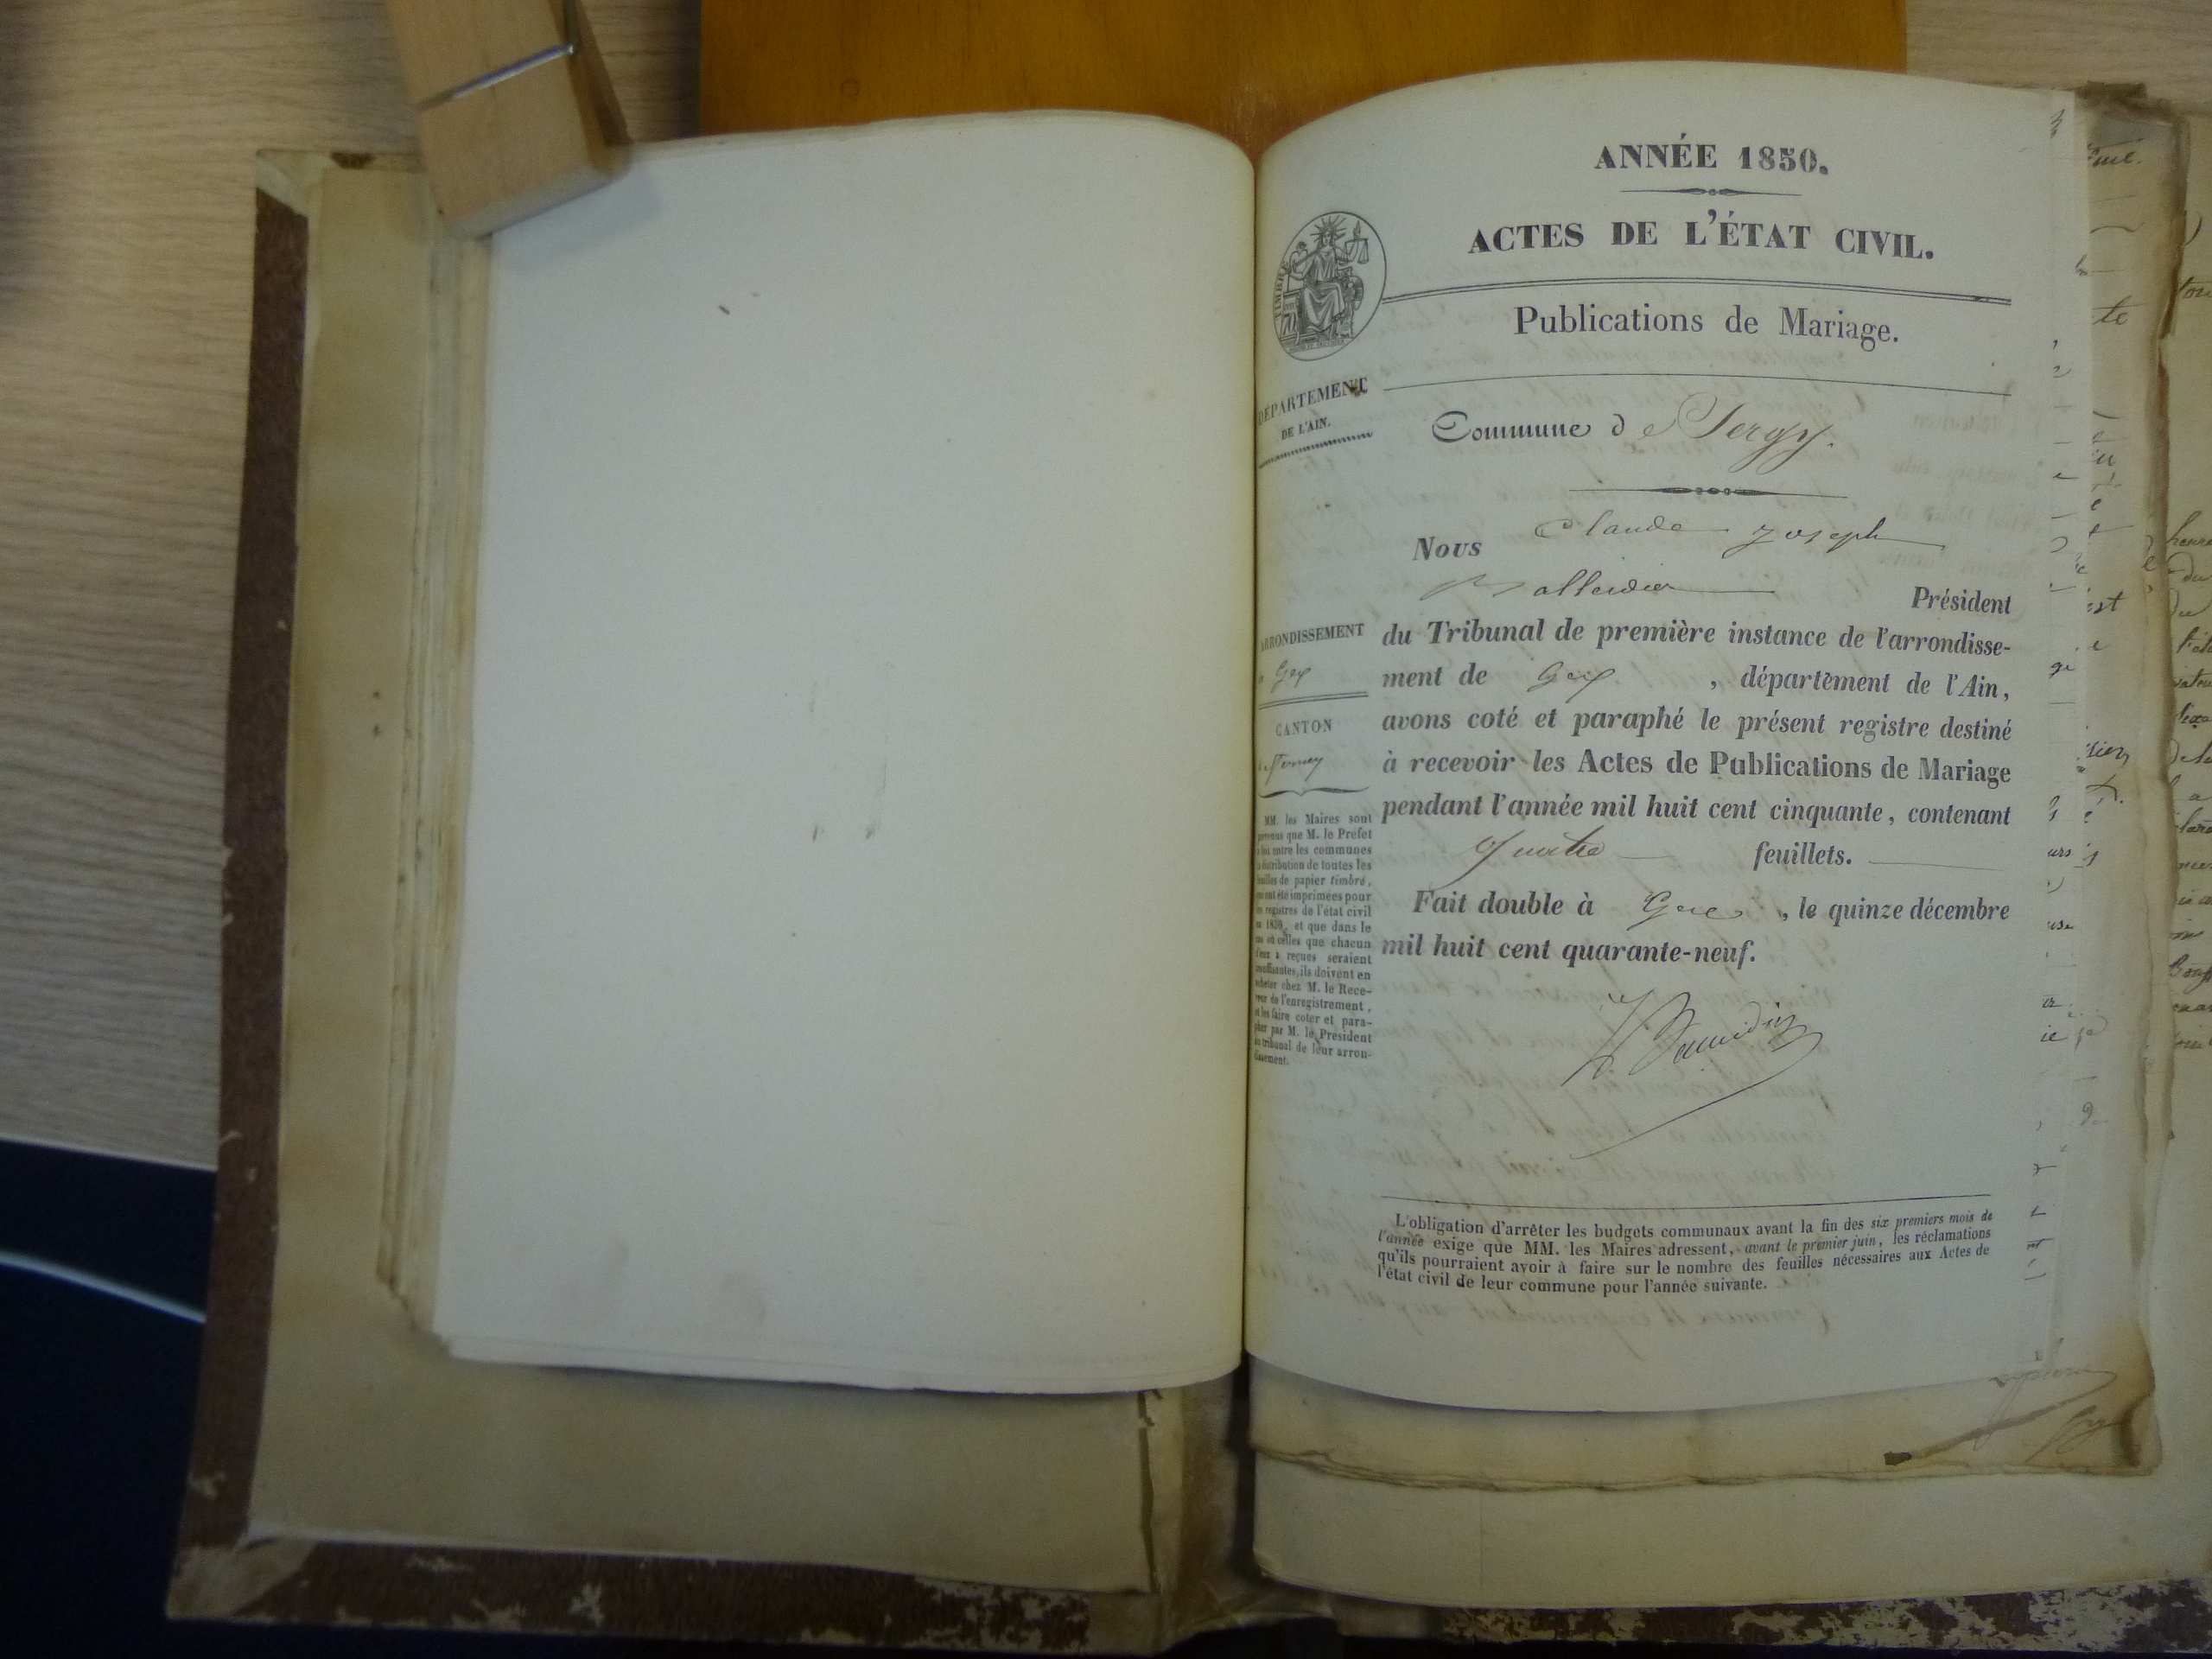 ANNÉE 1850.
ACTES DE L'ÉTAT CIVIL.
TIMBRE
Publications de Mariage.
DÉPARTEMENT
DE L'AIN.
Commune de Sergy.
Nous Claude Joseph
Président
ARRONDISSEMENT
Gex
CANTON
Ferney
du Tribunal de première instance de l'arrondisse-
ment de Gex, département de l'Ain,
avons coté et paraphé le présent registre destiné
à recevoir les Actes de Publications de Mariage
pendant l'année mil huit cent cinquante, contenant
quatre feuillets.
Fait double à Gex, le quinze décembre
mil huit cent quarante-neuf.
MM. les Maires sont
que M. le Préfet
entre les communes
distribution de toutes les
feuilles de papier timbré,
ont été imprimées pour
registres de l'état civil
et que dans le
où celles que chacun
d'eux a reçues seraient
insuffisantes, ils doivent en
acheter chez M. le Rece-
veur de l'enregistrement,
et les faire coter et para-
pher par M. le Président
du tribunal de leur arron-
dissement.
L'obligation d'arrêter les budgets communaux avant la fin des six premiers mois de
l'année exige que MM. les Maires adressent, avant le premier juin, les réclamations
qu'ils pourraient avoir à faire sur le nombre des feuilles nécessaires aux Actes de
l'état civil de leur commune pour l'année suivante.